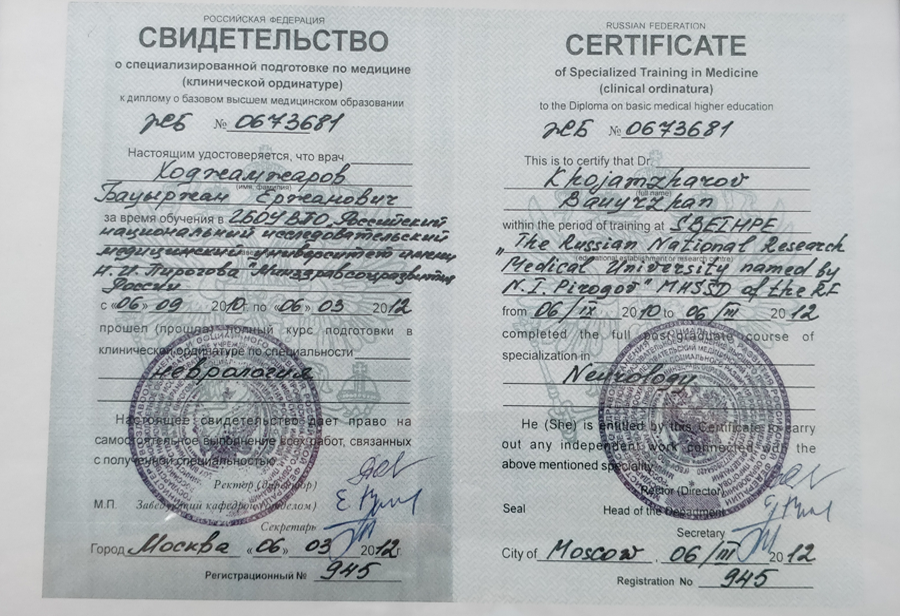 РОССИЙСКАЯ ФЕДЕРАЦИЯ
СВИДЕТЕЛЬСТВО
о специализированной подготовке по медицине
(клинической ординатуре)
к диплому о базовом высшем медицинском образовании
ЖБ № 0673681
Настоящим удостоверяется, что врач
Ходжамжаров
(имя, фамилия)
Бауыржан Ержанович
за время обучения в ГБОУ ВПО „Российский
национальный исследовательский
медицинский университет имени
Н.И. Пирогова" Минздравсоцразвития
России
с «06» 09 2010г. по «06» 03 2012
прошёл (прошла) полный курс подготовки в
клинической ординатуре по специальности
неврология
Настоящее свидетельство дает право на
самостоятельное выполнение всех работ, связанных
с полученной специальностью.
Ректор (директор)
М.П. Заведующий кафедрой (отделом)
Секретарь
Город Москва «06» 03 2012г.
Регистрационный № 945
RUSSIAN FEDERATION
CERTIFICATE
of Specialized Training in Medicine
(clinical ordinatura)
to the Diploma on basic medical higher education
ЖБ № 0673681
This is to certify that Dr.
Khojamzharov
(full name)
Bauyrzhan
within the period of training at SBEIHPE
„The Russian National Research
(educational establishment or research centre)
Medical University named by
N.I. Pirogov" MHSSD of the RF
from 06/IX 2010 to 06/III 2012
completed the full post-graduate course of
specialization in
Neurology
He (She) is entitled by this Certificate to carry
out any independent work connected with the
above mentioned speciality.
Rector (Director)
Seal Head of the Department
Secretary
City of Moscow, 06/III 2012
Registration No 945